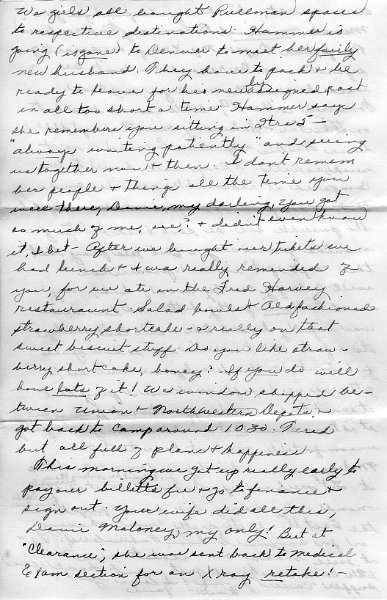 We girls all bought Pullman spaces
to respective destinations. Hammer is
going (is gone) to Denver to meet her family
new husband. They have to pack & be
ready to leave for his newly assigned post
in all too short a time. Hammer says
she remembers you sitting in Hrs 5 -
"always waiting patiently" and seeing
us together now & then. I don't remem
ber people & things all the time you
were there, Danie, my darling, you got
so much of me, see? & didn't even know
it, I bet - After we bought our tickets we
had lunch & I was really reminded of
you, for we ate in the Fred Harvey
restauraunt. Salad bowl & Old fashioned
strawberry shortcake - & really on that
sweet biscuit stuff. Do you like straw-
berry shortcake, honey? If you do we'll
have lots of it! We window shopped be-
tween Union & Northwestern Depots, -
got back to camp around 1030. Tired
but all full of plans & happiness.
This morning we got up really early to
pay our billetts fee & go to finance &
sign out. Your wife did all this,
Danie Maloney, my only! But at
"Clearance", she was sent back to Medical
Exam section for an X ray retake! -